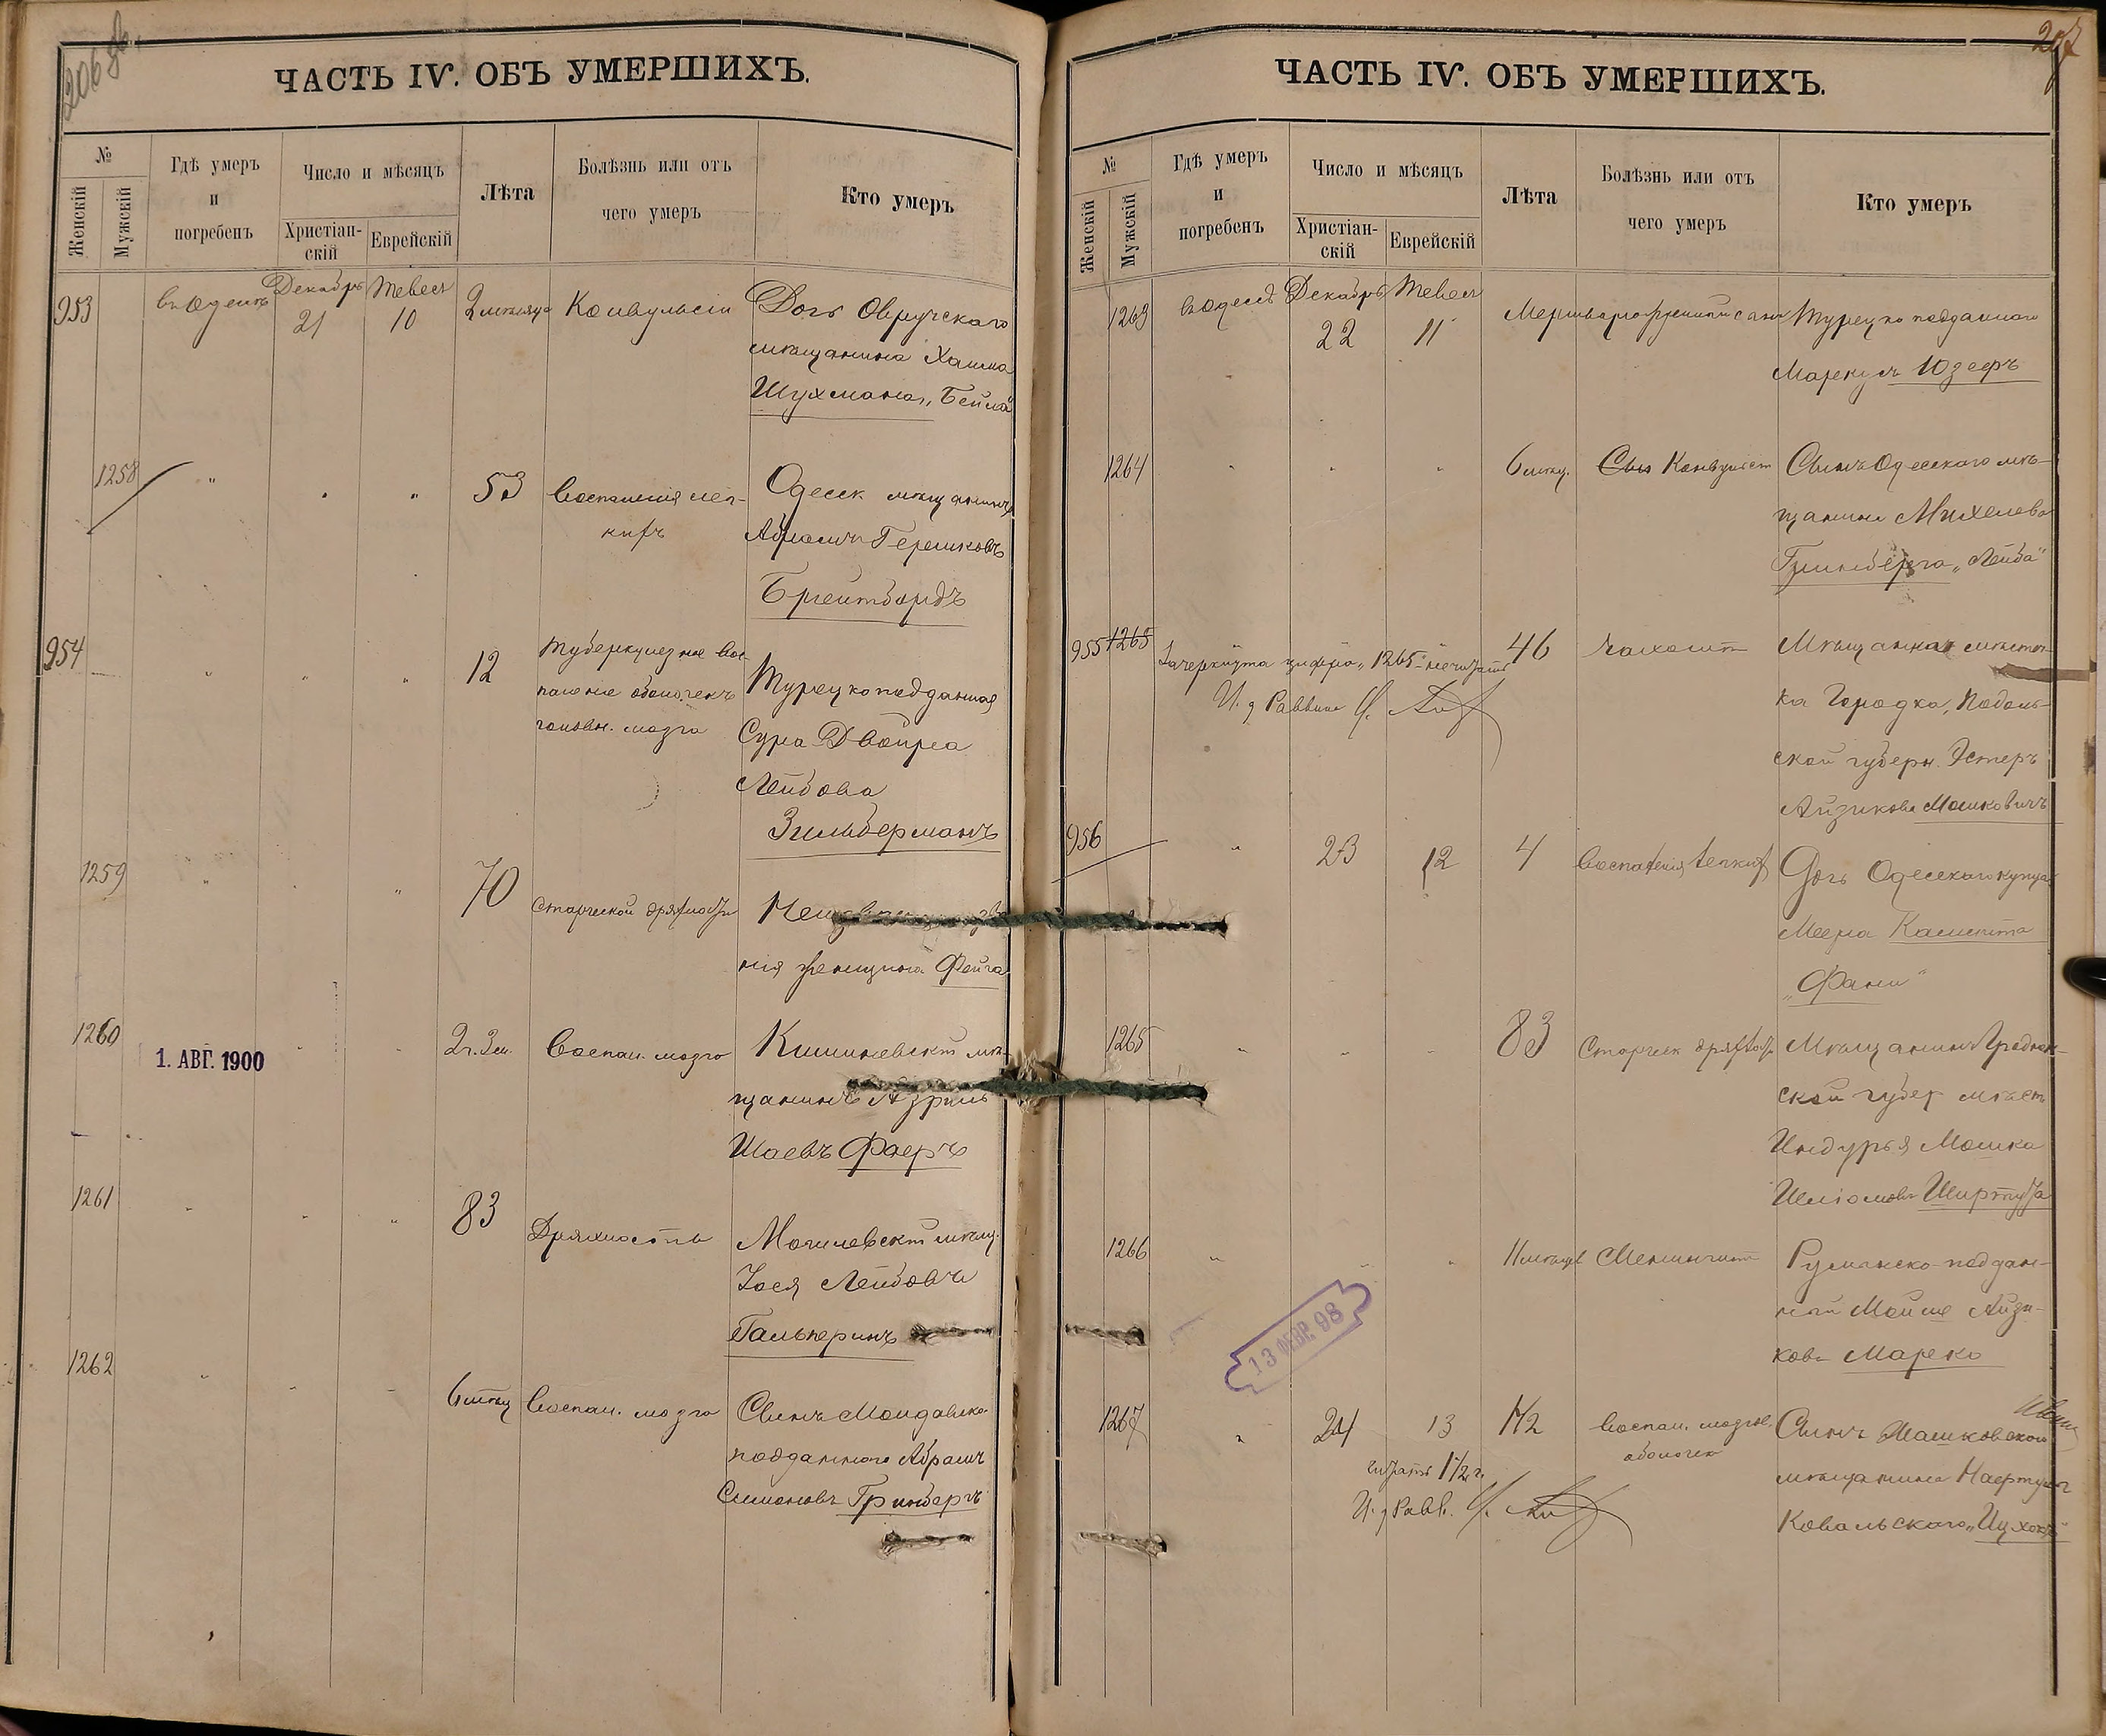 206 об.
ЧАСТЬ IV. ОБЪ УМЕРШИХЪ.
№
Женскій
Мужскій
Гдѣ умеръ
и
погребенъ
Число и мѣсяцъ
Христіан-
скій
Еврейскій
Лѣта
Болѣзнь или отъ
чего умеръ
Кто умеръ
953 въ Одессѣ Декабрь 21 Тевесъ 10 2 мѣсяца Конвульсіи Дочь Овручскаго
мѣщанина Хаима
Шухмана „Бейла“
1258 " " " 53 Воспаленія лег-
кихъ
Одесск мѣщанинъ
Абрамъ Гершковъ
Брейтбордъ
954 " " " 12 Туберкулезное вос-
паленіе оболочекъ
головн. мозга
Турецкоподданная
Сура Двойра
Лейбова
Зильберманъ
1259 " " " 70 Старческой дряхлости
нія женщина Фейга
1260 1. АВГ. 1900 " " 2 г. 3 м. Воспал. мозга Кишиневскій мѣ-
щанинъ Азриль
Шаевъ Фаеръ
1261 " " " 83 Дряхлость Могилевскій мѣщ.
Іося Лейбовъ
Гальперинъ
1262 " " " 6 мѣсц Воспал. мозга Сынъ Молдавско-
подданного Абрамъ
Симоновъ Гринбергъ
207
ЧАСТЬ IV. ОБЪ УМЕРШИХЪ.
№
Женскій
Мужскій
Гдѣ умеръ
и
погребенъ
Число и мѣсяцъ
Христіан-
скій
Еврейскій
Лѣта
Болѣзнь или отъ
чего умеръ
Кто умеръ
1263 въ Одессѣ Декабрь 22 Тевесъ 11 Турецко подданного
Маркусъ Юзефъ
1264 " " " 6 мѣсц. Сын Конвульсіи Сынъ Одесскаго мѣ-
щанина Михелева
Гринберга „Лейба“
955 1265 Зачеркнута цифра „1265“ не читать
И. д. Раввина
46 Мѣщанка мѣстеч-
ка Городка, Подоль-
ской губерн. Эстеръ
Айзикова Мошковичъ
956 " 23 12 4 Воспаленія легкихъ Дочь Одесскаго купца
Меера
„Фани“
1265 " " " 83 Старческ дряхлость Мѣщанинъ Гроднен-
ской губер мѣст
Индурья Мошка
1266 " " " 11 мѣсцевъ Менингит Румынско-поддан-
ный Мойше Айзи-
ковъ Марко
1267 " 24 13 1 1/2 Воспал. мозгов.
оболочек
читать 1 1/2 г.
И. д. Равв.
Сынъ Машковской
мѣщанина
Ковальского „Ицхокъ“
13 ФЕВР. 98